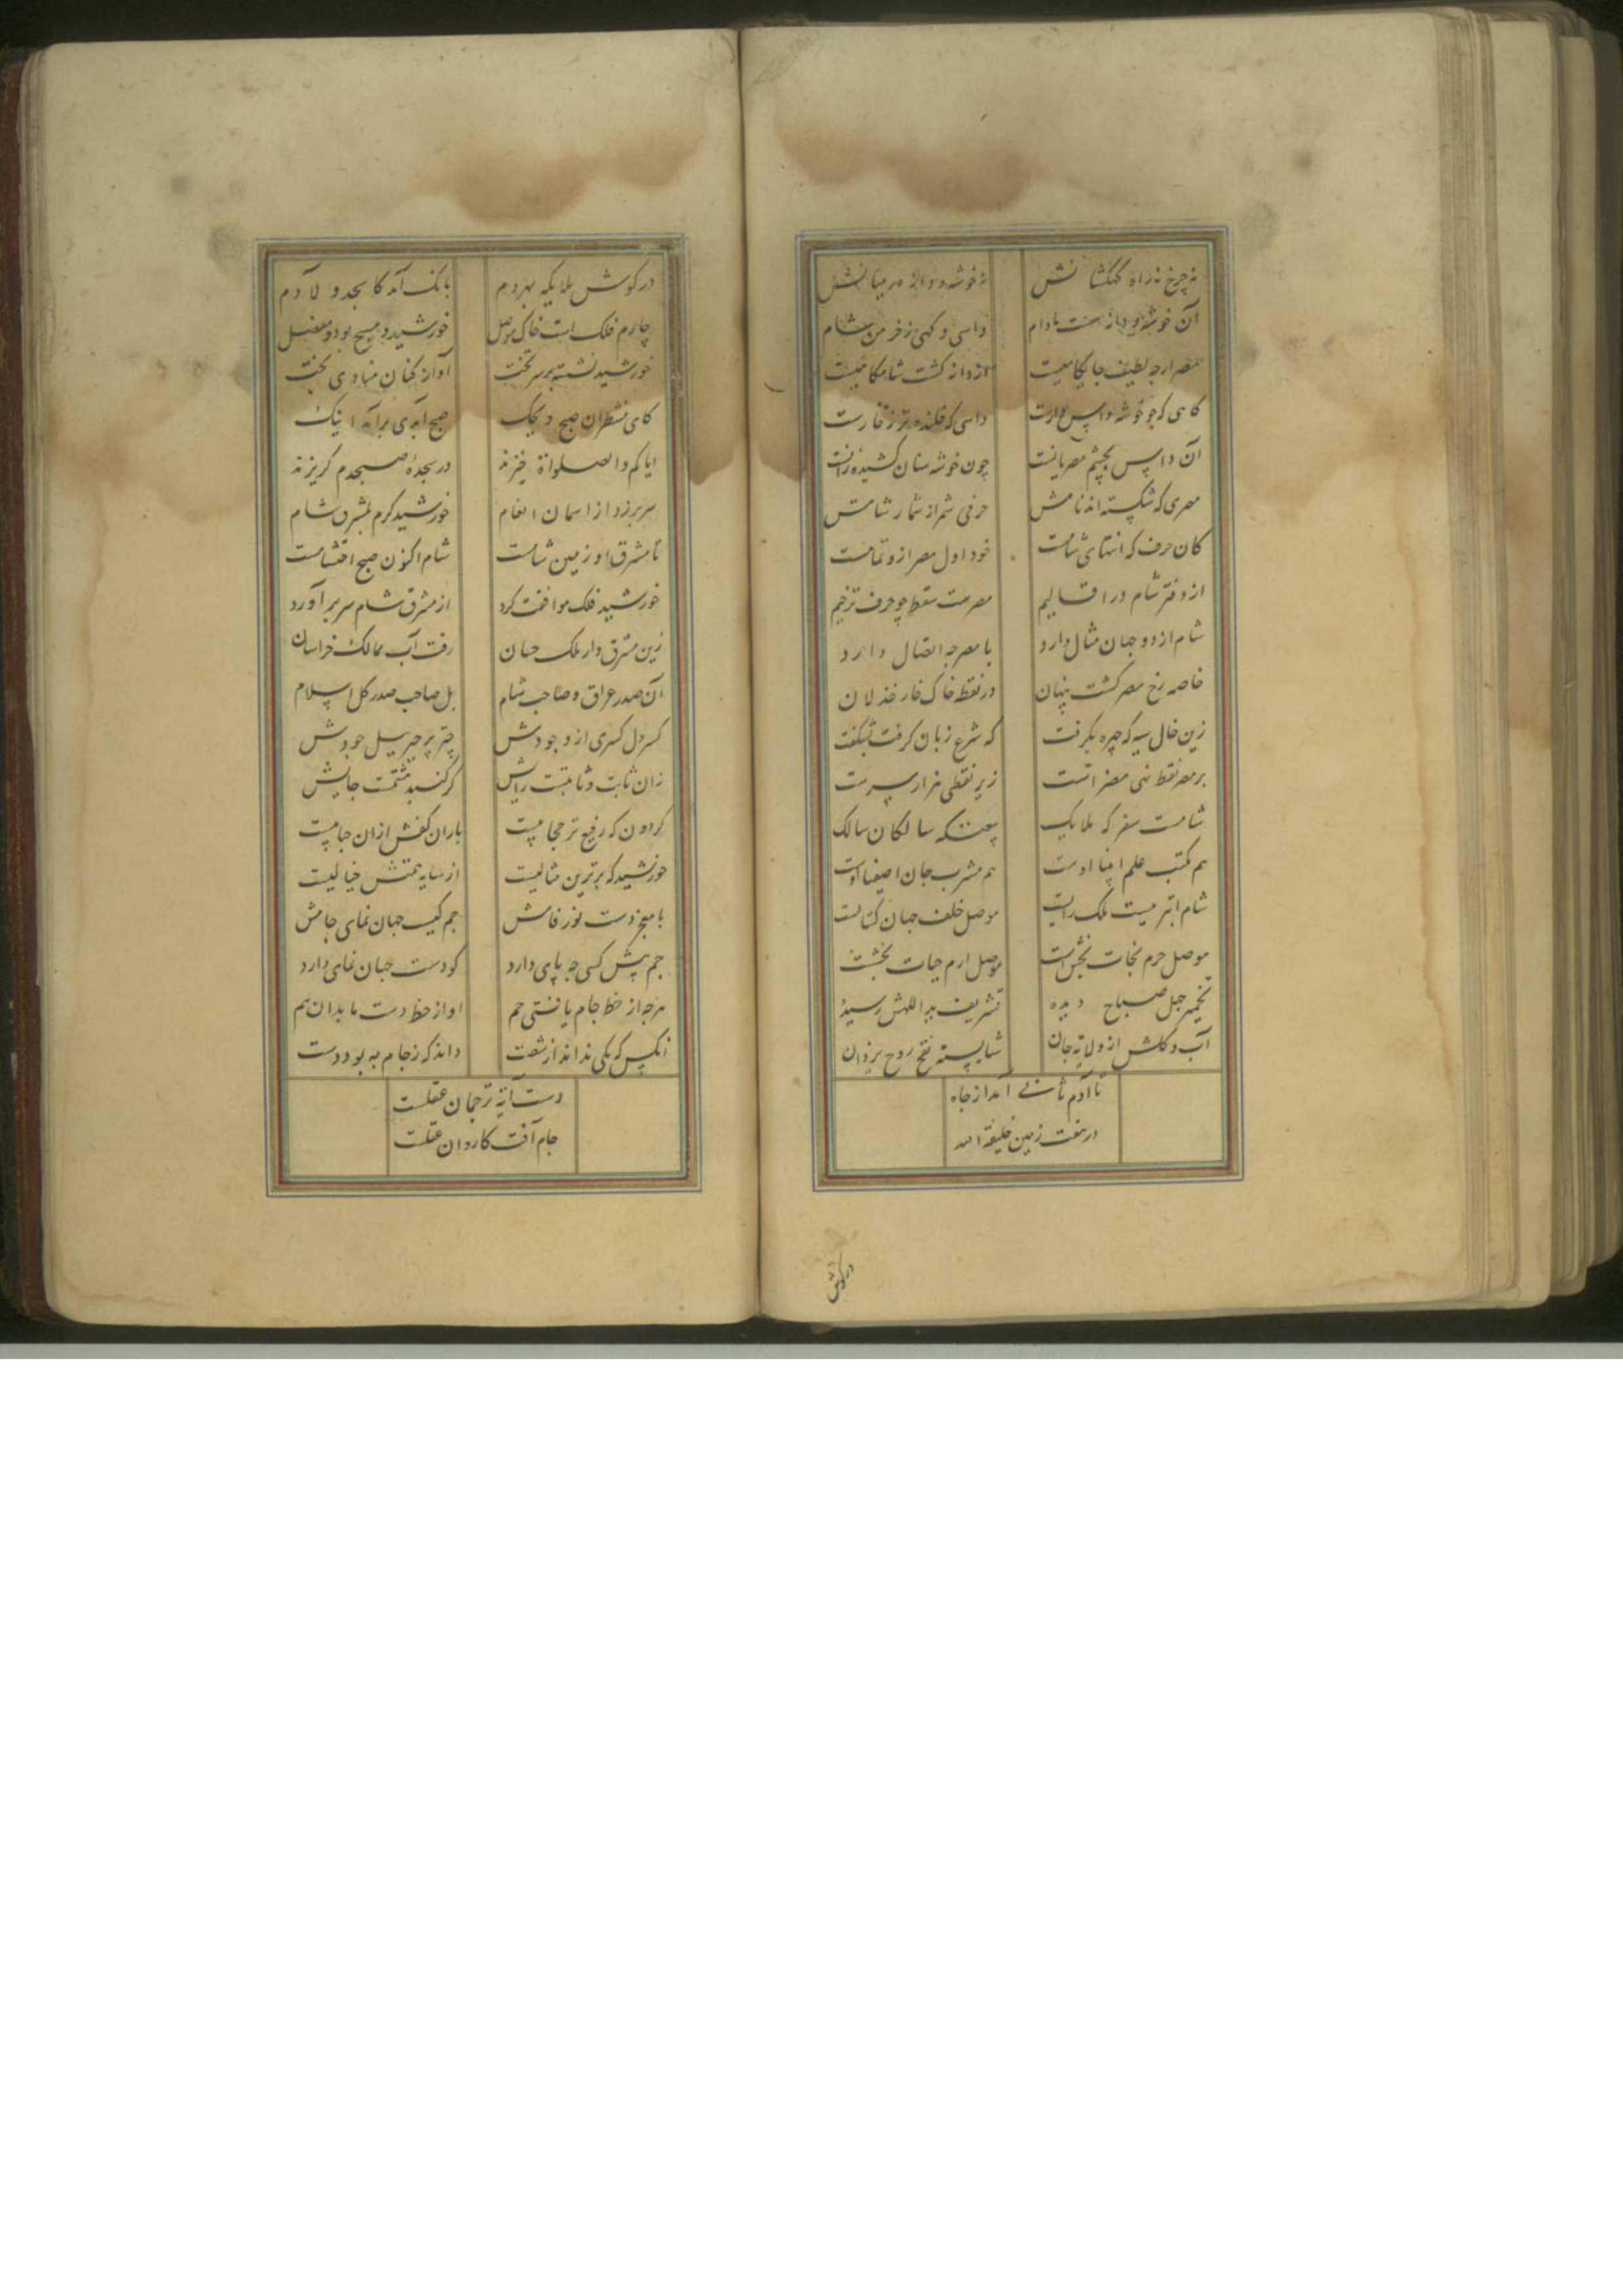 نه چرخ نه راه کهکشانش نه خوشه و دانه در میانش
آن خوشه و دانه هست مادام داسی و کهی ز خرمن شام
مصر ارچه لطیف جایکاهیست از دانه کشت شام کاهیست
کاهی که چو خوشه داس دارست داسی که فکنده تر ز قارست
آن داس بچشم مصریانست چون خوشه سنان کشیده زانست
مصری که شکسته اند نامش حرفی شمر از شمار شامش
کان حرف که انتهای شامست خود اول مصر ازو تمامست
از دفتر شام در اقالیم مصرست سقط چو حرف ترخیم
شام از دو جهان مثال دارد با مصر چه اتصال دارد
خاصه رخ مصر کشت پنهان در نقطه خاک خار خذلان
زین خال سیه که چهره بکرفت که شرع زبان کرفت بشکفت
بر مصر نقط نهی مضر است زیر نقطی هزار سرست
شامست سفر که ملایک بیعتکه سالکان سالک
هم مکتب علم انبیا اوست هم مشرب جان اصفیا اوست
شام ابر میست ملک رایت موصل خلف جهان کتالت
موصل حرم نجات بخش است موصل ارم حیات بخشت
تخمیر چهل صباح دیده تشریف ید اللهش رسیده
آب و کلش از ولایه جان شایسته نفخ روح یزدان
تا آدم ثانی آمد از جاه
در هفت زمین خلیفة الله
در کوش
در کوش ملایکه بهر دم بانک آمد کاسجدو لآدم
چارم فلک است خاک موصل خورشید و مسیح بود و مفضل
خورشید نشسته بر سر تخت آواز کنان منادی بخت
کای منتظران صبح دیجک صبح ابدی بر آمد اینک
ایاکم والصلواة خیزند در سجدهٔ صبحدم کریزند
سر بر زد از اسمان انعام خورشید کرم بمشرق شام
تا مشرق او زمین شامست شام اکنون صبح احتشامست
خورشید فلک موافقت کرد از مشرق شام سر بر آورد
زین مشرق دار ملک جهان رفت آب ممالک خراسان
آن صدر عراق و صاحب شام بل صاحب صدر کل اسلام
کسر دل کسری از وجودش چتر پر جبرییل جودش
زان ثابت و ثامنست رایش کز کنبد هشتمست جایش
کردون که رفیع تر حجابیست باران کفش ازان حبابیست
خورشید که برترین مثالیست از سایه همتش خیالیست
با معجز دست نور فاش جم کیست جهان نمای جامش
جم پیش کسی چه پای دارد کو دست جهان نمای دارد
هرچه از خط جام یافتی جم او از خط دست ما بدان هم
آنکس که یکی نداند از شصت داند که ز جام به بود دست
دست آینه ترجمان عقلست
جام آفت کاردان عقلست